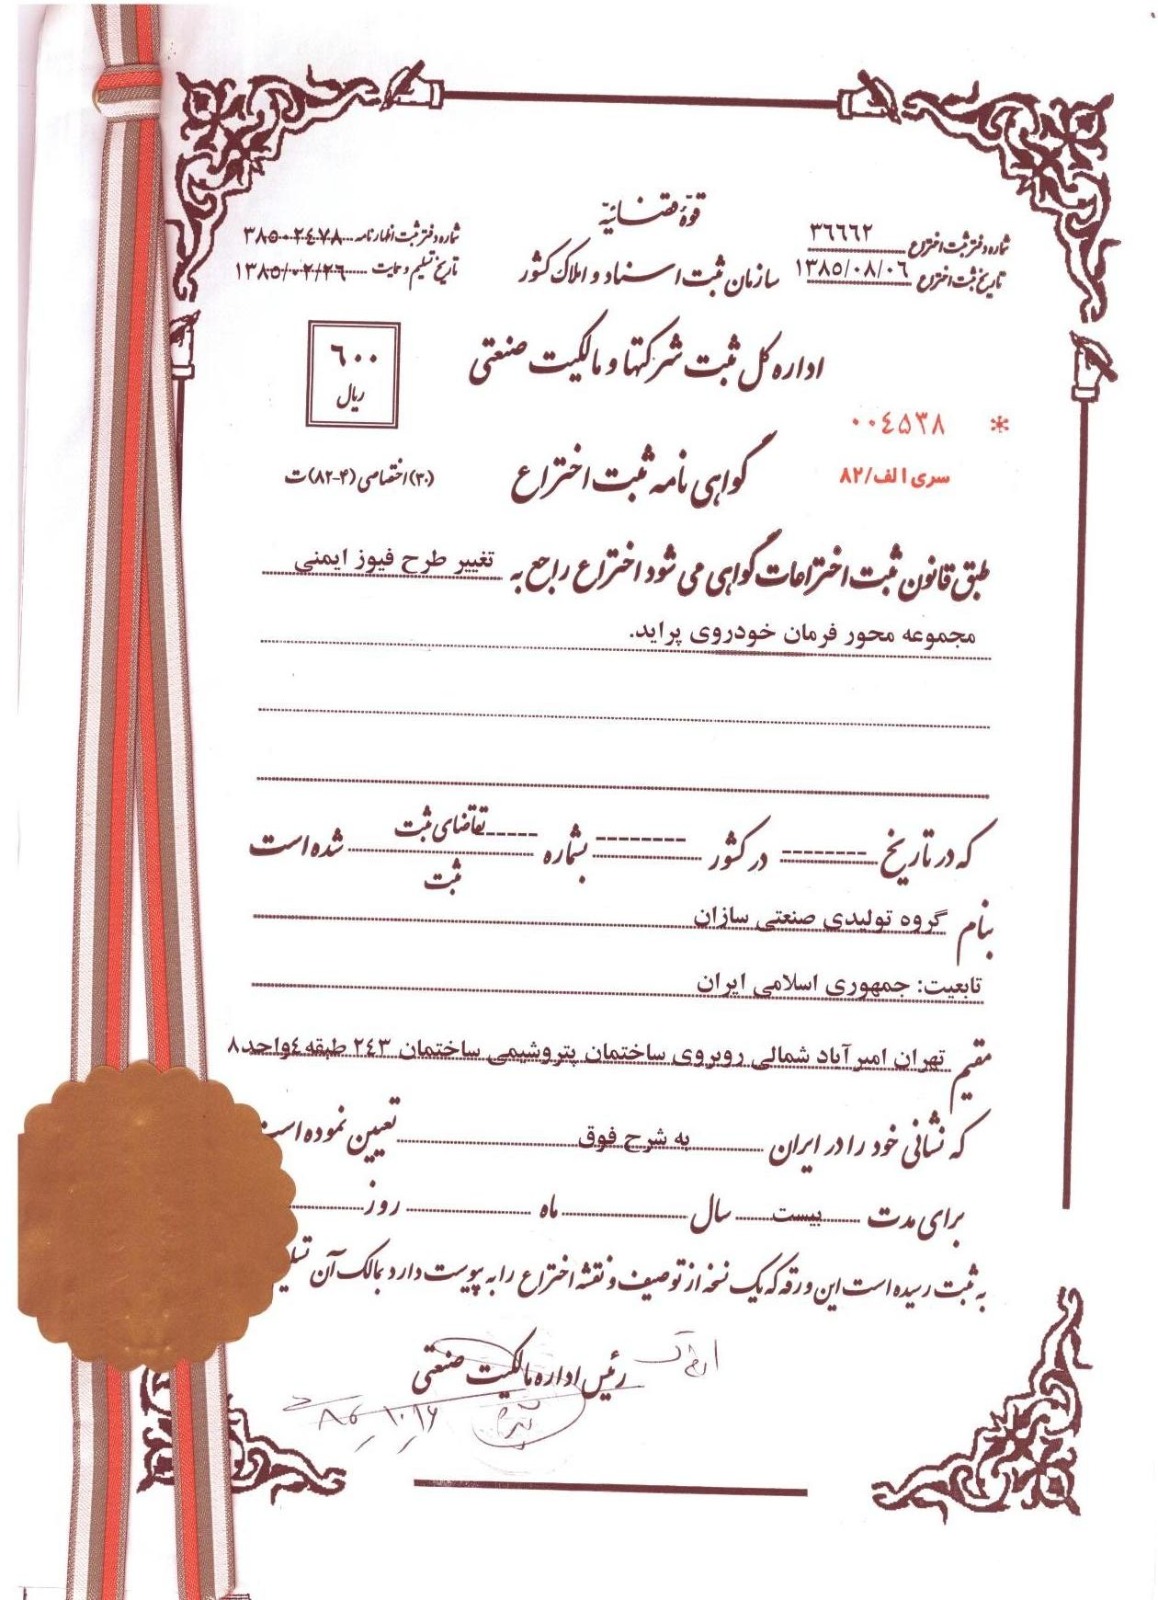 قوهٔ قضائیه
شماره دفتر ثبت اختراع ۳۶۶۶۲
شماره دفتر ثبت اظهارنامه ۳۸۵۰۲۴۷۸
سازمان ثبت اسناد و املاک کشور
تاریخ ثبت اختراع ۱۳۸۵/۰۸/۰۶
تاریخ تسلیم و حمایت ۱۳۸۵/۰۲/۲۶
اداره کل ثبت شرکتها و مالکیت صنعتی
۶۰۰
ریال
* ۰۰۴۵۳۸
سری ۱ الف/۸۲
گواهی نامه ثبت اختراع
(۳۰) اختصاصی (۴-۸۲) ت
طبق قانون ثبت اختراعات گواهی می شود اختراع راجع به تغییر طرح فیوز ایمنی
مجموعه محور فرمان خودروی پراید.
که در تاریخ -------- در کشور -------- بشماره ----- تقاضای ثبت شده است
ثبت
بنام گروه تولیدی صنعتی سازان
تابعیت: جمهوری اسلامی ایران
مقیم تهران امیرآباد شمالی روبروی ساختمان پتروشیمی ساختمان ۲۴۳ طبقه ۴ واحد ۸
که نشانی خود را در ایران به شرح فوق تعیین نموده است
برای مدت بیست سال ماه روز
به ثبت رسیده است این ورقه که یک نسخه از توصیف و نقشه اختراع را به پیوست دارد بمالک آن
رئیس اداره مالکیت صنعتی